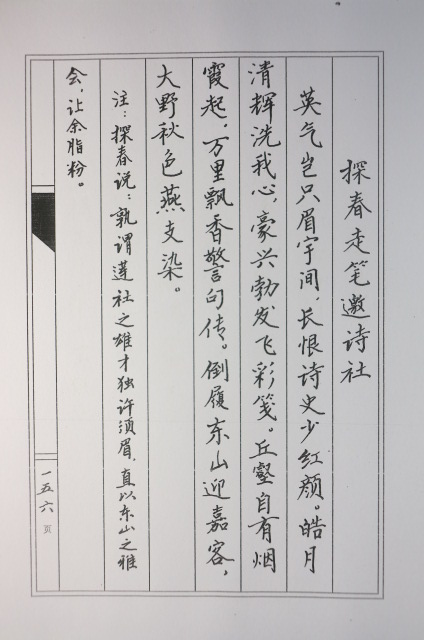 探春走笔邀诗社
英气岂只眉宇间，长恨诗史少红颜。皓月
清辉洗我心，豪兴勃发飞彩笺。丘壑自有烟
霞起，万里飘香警句传。倒履东山迎嘉客，
大野秋色燕支染。
注：探春说：孰谓莲社之雄才独许须眉，直以东山之雅
会，让余脂粉。
一五六页